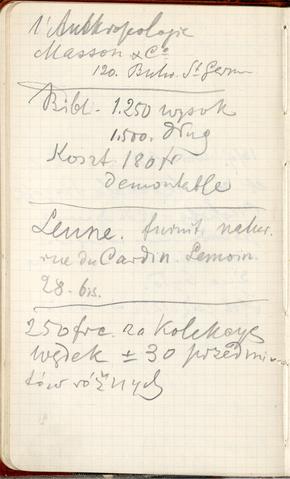 l'Anthropologie
Masson & Co
120. Bulv. St Germ
Bibl. 1.250 wysok
1.500. dług
Koszt 180 fr
demontable
Leune. furnit. natur.
rue du Cardin. Lemoin.
28. bis.
250 frc. za Kolekcye
wędek ± 30 przedmio-
tów różnych